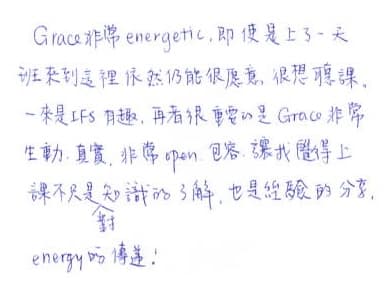 Grace非常energetic,即使是上了一天
班來到這裡依然仍能很願意,很想聽課。
一來是IFS有趣,再者很重要的是Grace非常
生動.真實.非常open.包容.讓我覺得上
課不只是對知識的了解,也是經驗的分享,
energy的傳遞!